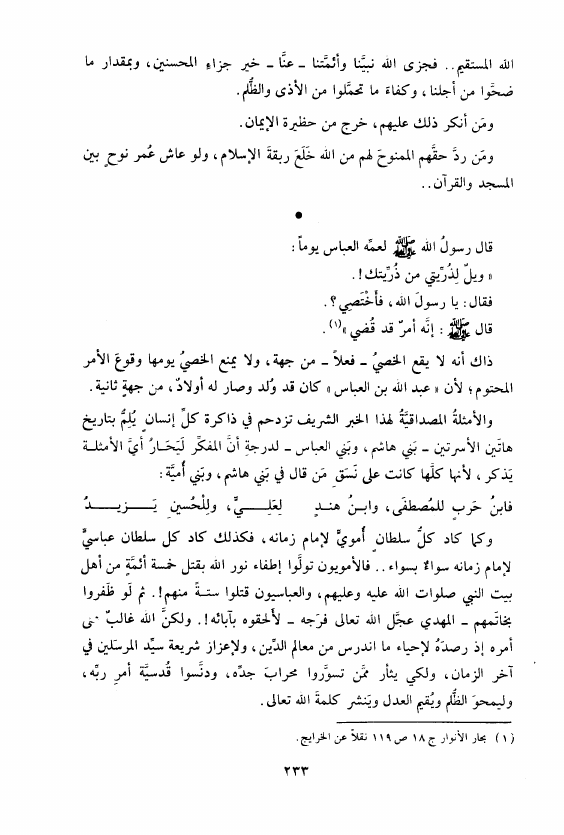 الله المستقيم.. فجزى الله نبيَّنا وأئمَّتنا - عنَّا - خير جزاءِ المحسنين، وبمقدار ما
ضحَّوا من أجلنا، وكفاءَ ما تحمَّلوا من الأذى والظُّلم.
ومَن أنكر ذلك عليهم، خرج من حظيرة الإيمان.
ومَن ردَّ حقَّهم الممنوحَ لهم من الله خَلَعَ ربقةَ الإسلام، ولو عاش عُمر نوحٍ بين
المسجد والقرآن..
●
قال رسولُ الله ﷺ لعمِّه العباس يوماً:
« ويلٌ لِذُرِّيتي من ذُرِّيتك!.
فقال: يا رسولَ الله، فأَخْتَصِي؟.
قال ﷺ: إنَّه أمرٌ قد قُضي»(١).
ذاك أنه لا يقع الخصيُ - فعلاً - من جهة، ولا يمنع الخصيُ يومها وقوعَ الأمر
المحتوم؛ لأن « عبد الله بن العباس » كان قد وُلد وصار له أولادٌ، من جهةٍ ثانية.
والأمثلةُ المصداقيَّةُ لهذا الخبر الشريف تزدحم في ذاكرة كلِّ إنسانٍ يُلِمُّ بتاريخ
هاتَين الأسرتين - بَني هاشم، وبَني العباس - لدرجةِ أنَّ المفكِّر لَيَحَارُ أيَّ الأمثلة
يَذكر، لأنها كلَّها كانت على نَسَقِ مَن قال في بَني هاشم، وبَني أُميَّة:
فابنُ حَربٍ للمُصطفَى، وابنُ هندٍ لِعَلِيٍّ، وللْحُسينِ يَزيدُ
وكما كاد كلُّ سلطانٍ أُمويٍّ لإمام زمانه، فكذلك كاد كل سلطان عباسيٍّ
لإمام زمانه سواءً بسواء.. فالأمويون تولَّوا إطفاء نور الله بقتل خمسة أئمَّةٍ من أهل
بيت النبي صلوات الله عليه وعليهم، والعباسيون قتلوا ستةً منهم!. ثم لَو ظَفروا
بخاتَمهم - المهدي عجَّل الله تعالى فرَجه - لأَلحقوه بآبائه!. ولكنَّ الله غالبٌ على
أمره إذ رصدَهُ لإحياء ما اندرس من معالم الدِّين، ولإعزاز شريعة سيِّد المرسَلين في
آخر الزمان، ولكي يثأر ممَّن تسوَّروا محرابَ جدِّه، ودنَّسوا قُدسيَّة أمرِ ربِّه،
وليمحوَ الظُّلم ويُقيم العدل ويَنشر كلمةَ الله تعالى.
(١) بحار الأنوار ج ١٨ ص ١١٩ نقلاً عن الخرايج.
٢٣٣